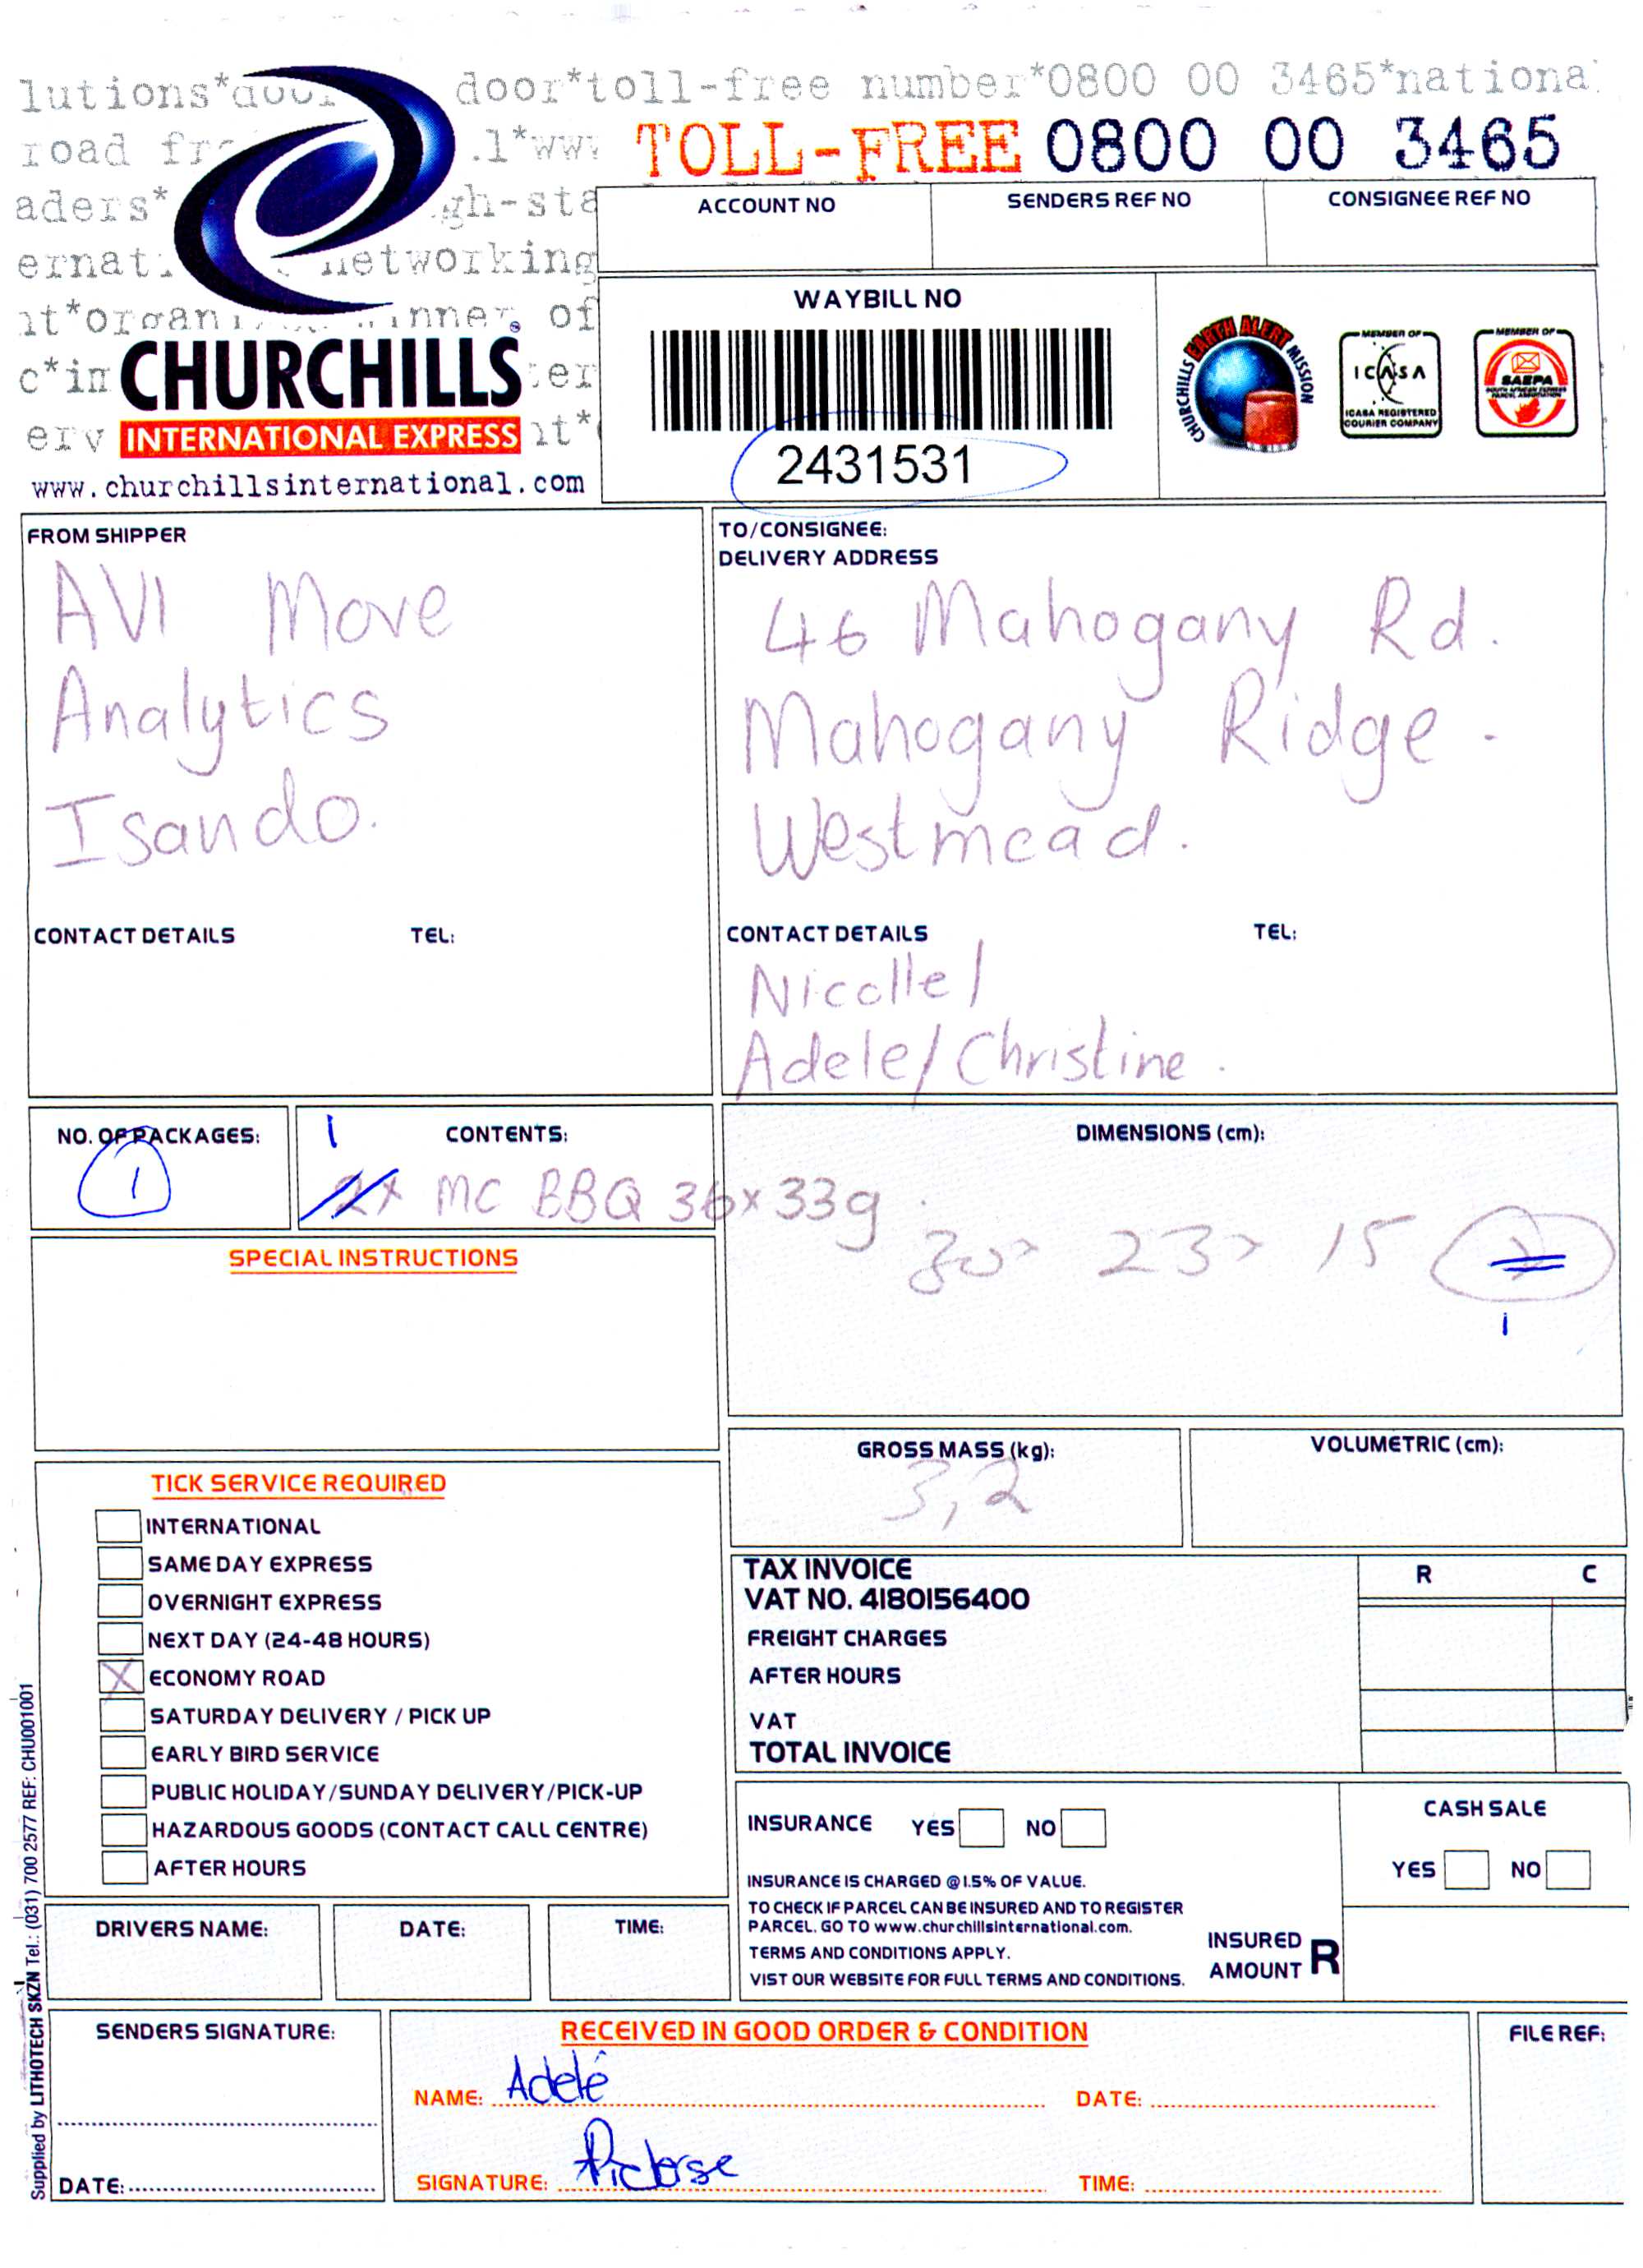 lutions*door door*toll-free number*0800 00 3465*national
road fre .l*www
TOLL-FREE 0800 00 3465
aders* gh-sta
ernati networking
nt*organi inner of
c*in ter
erv nt*
CHURCHILLS
INTERNATIONAL EXPRESS
www.churchillsinternational.com
ACCOUNT NO SENDERS REF NO CONSIGNEE REF NO
WAYBILL NO
2431531
CHURCHILLS EARTH ALERT MISSION
MEMBER OF
ICASA
ICASA REGISTERED
COURIER COMPANY
MEMBER OF
SAEPA
SOUTH AFRICAN EXPRESS
PARCEL ASSOCIATION
FROM SHIPPER
AVI Move
Analytics
Isando.
CONTACT DETAILS TEL:
TO/CONSIGNEE:
DELIVERY ADDRESS
46 Mahogany Rd.
Mahogany Ridge.
Westmead.
CONTACT DETAILS TEL:
Nicolle/
Adele/Christine.
NO. OF PACKAGES:
1
CONTENTS:
1
2x MC BBQ 36x33g.
DIMENSIONS (cm):
30x 23x 15
1
SPECIAL INSTRUCTIONS
GROSS MASS (kg):
3,2
VOLUMETRIC (cm):
TICK SERVICE REQUIRED
INTERNATIONAL
SAME DAY EXPRESS
OVERNIGHT EXPRESS
NEXT DAY (24-48 HOURS)
X ECONOMY ROAD
SATURDAY DELIVERY / PICK UP
EARLY BIRD SERVICE
PUBLIC HOLIDAY/SUNDAY DELIVERY/PICK-UP
HAZARDOUS GOODS (CONTACT CALL CENTRE)
AFTER HOURS
TAX INVOICE R C
VAT NO. 4180156400
FREIGHT CHARGES
AFTER HOURS
VAT
TOTAL INVOICE
INSURANCE YES NO
INSURANCE IS CHARGED @ 1.5% OF VALUE.
TO CHECK IF PARCEL CAN BE INSURED AND TO REGISTER
PARCEL. GO TO www.churchillsinternational.com.
TERMS AND CONDITIONS APPLY.
VIST OUR WEBSITE FOR FULL TERMS AND CONDITIONS.
INSURED
AMOUNT R
CASH SALE
YES NO
DRIVERS NAME: DATE: TIME:
SENDERS SIGNATURE:
DATE:
RECEIVED IN GOOD ORDER & CONDITION
NAME: Adelé DATE:
SIGNATURE: TIME:
FILE REF:
Supplied by LITHOTECH SKZN Tel.: (031) 700 2577 REF: CHU001001